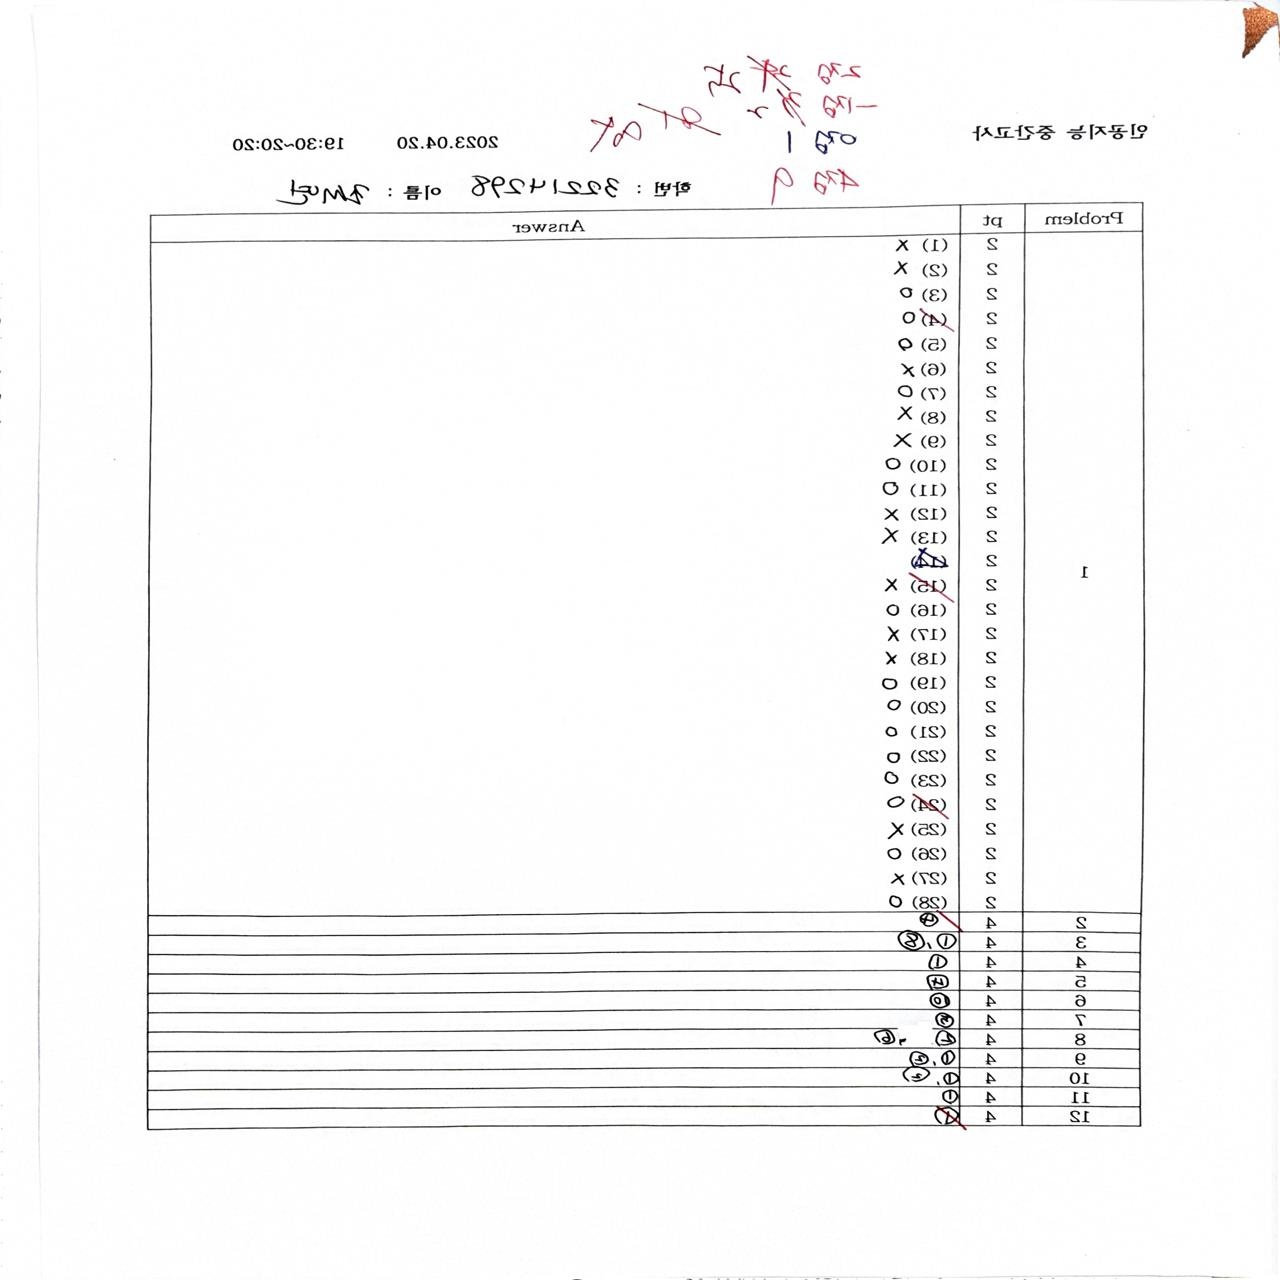 인공지능 중간고사 2023.04.20 19:30~20:20
2점
-1점
0점 1
4점 9
학번 : 32214298 이름 :
Problem pt Answer
1
2 (1) X
2 (2) X
2 (3) O
2 (4) O
2 (5) O
2 (6) X
2 (7) O
2 (8) X
2 (9) X
2 (10) O
2 (11) O
2 (12) X
2 (13) X
2 (14)
2 (15) X
2 (16) O
2 (17) X
2 (18) X
2 (19) O
2 (20) O
2 (21) O
2 (22) O
2 (23) O
2 (24) O
2 (25) X
2 (26) O
2 (27) X
2 (28) O
2 4
3 4 ①, ⑧
4 4 ①
5 4 ⑦
6 4
7 4
8 4
9 4
10 4
11 4 ①
12 4